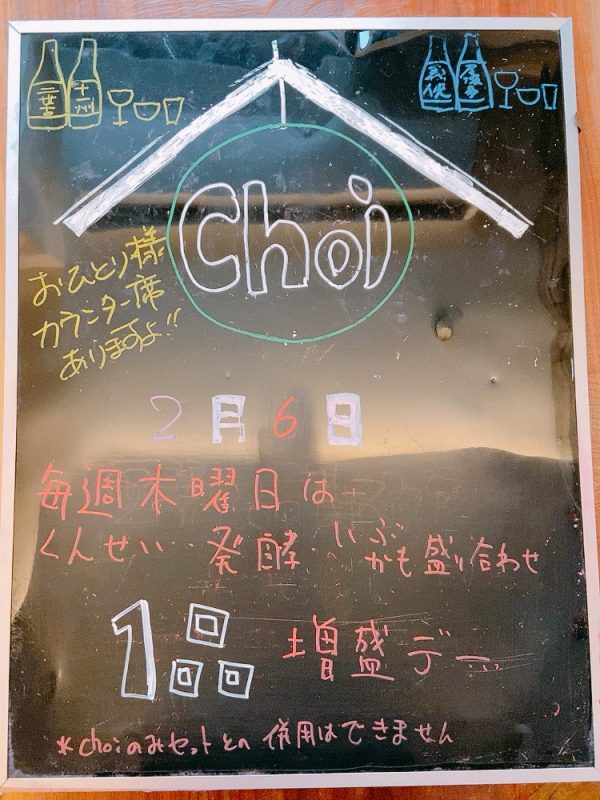 二葉古
十二州
Choi
おひとり様
カウンター席
ありますよ!!
2月6日
毎週木曜日は
くんせい・発酵・いぶかも盛り合わせ
1品増盛デー
*choiのみセットとの併用はできません